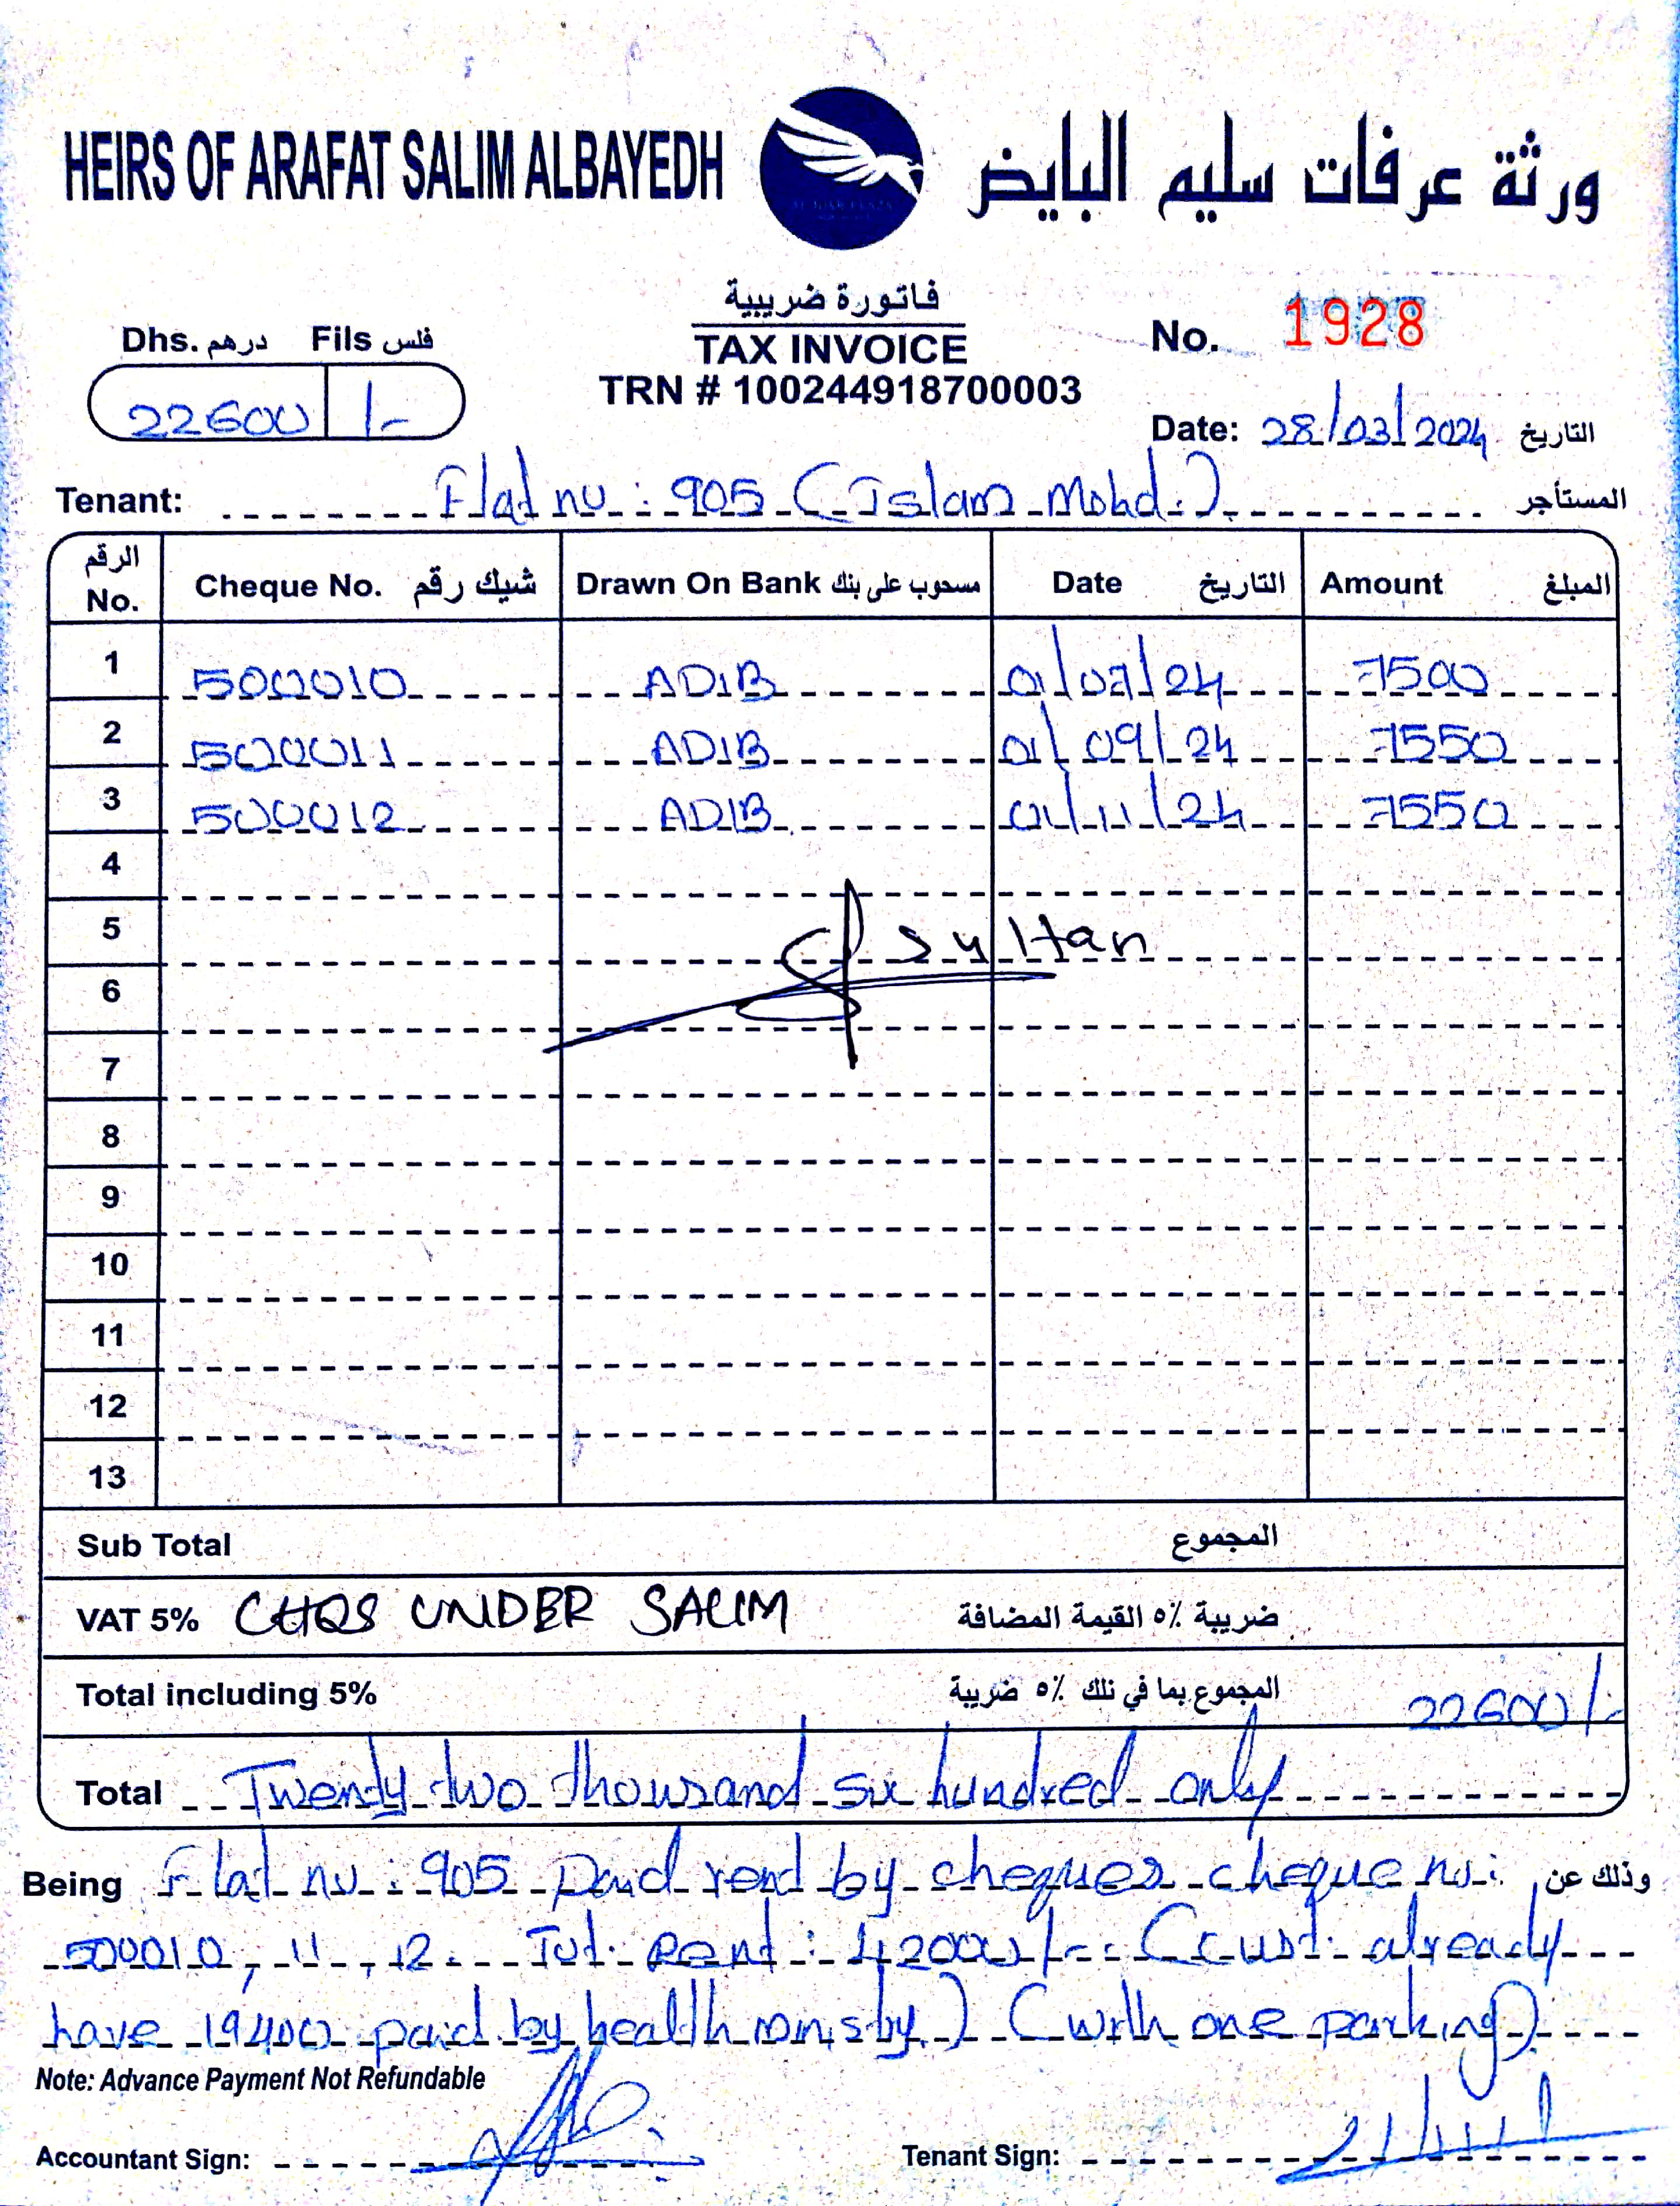 HEIRS OF ARAFAT SALIM ALBAYEDH ورثة عرفات سليم البايض
فاتورة ضريبية
TAX INVOICE
TRN # 100244918700003
Dhs. درهم Fils فلس
22600 /-
No. 1928
Date: 28/03/2024 التاريخ
Tenant: Flat no : 905 (Islam Mohd.) المستأجر
الرقم No. Cheque No. شيك رقم Drawn On Bank مسحوب على بنك Date التاريخ Amount المبلغ
1 500010 ADIB 01/07/24 7500
2 500011 ADIB 01/09/24 7550
3 500012 ADIB 01/11/24 7550
4
5 Sultan
6
7
8
9
10
11
12
13
Sub Total المجموع
VAT 5% CHQS UNDER SALIM ضريبة ٥% القيمة المضافة
Total including 5% المجموع بما في ذلك ٥% ضريبة 22600/-
Total Twenty two thousand six hundred only
Being Flat no : 905 Paid rent by cheques cheque no: وذلك عن
500010, 11, 12. Tot. Rent : 42000/-- (cust. already
have 19400 paid by health minsty.) (with one parking)
Note: Advance Payment Not Refundable
Accountant Sign: Tenant Sign: